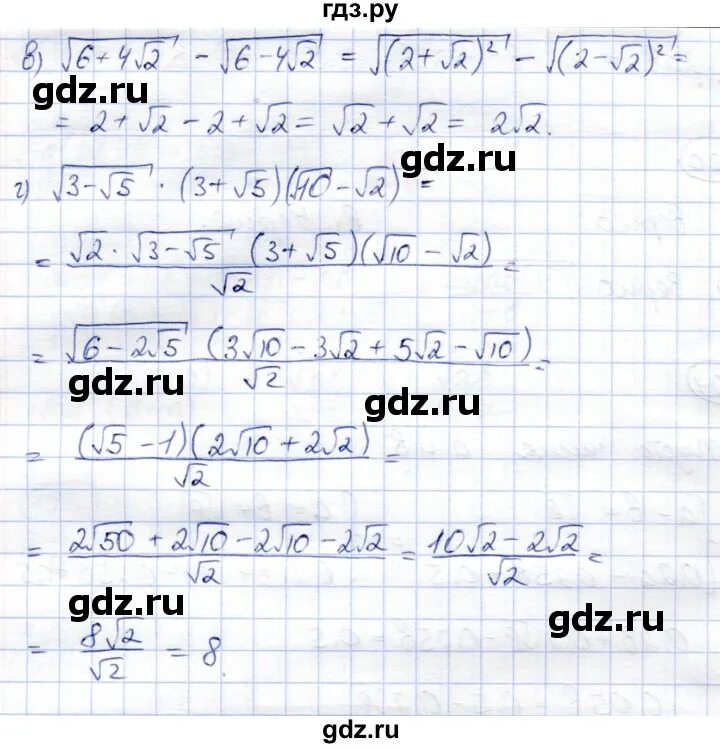 гдз.ру
в) √(6+4√2) - √(6-4√2) = √((2+√2)²) - √((2-√2)²) =
gdz.ru
= 2+√2 - 2+√2 = √2+√2 = 2√2.
gdz.ru
г) √(3-√5) · (3+√5)(√10-√2) =
= (√2 · √(3-√5) (3+√5)(√10-√2))/√2 =
= (√(6-2√5) (3√10-3√2+5√2-√10))/√2 =
gdz.ru
gdz.ru
= ((√5-1)(2√10+2√2))/√2 =
= (2√50+2√10-2√10-2√2)/√2 = (10√2-2√2)/√2 =
gdz.ru
gdz.ru
= 8√2/√2 = 8.
gdz.ru